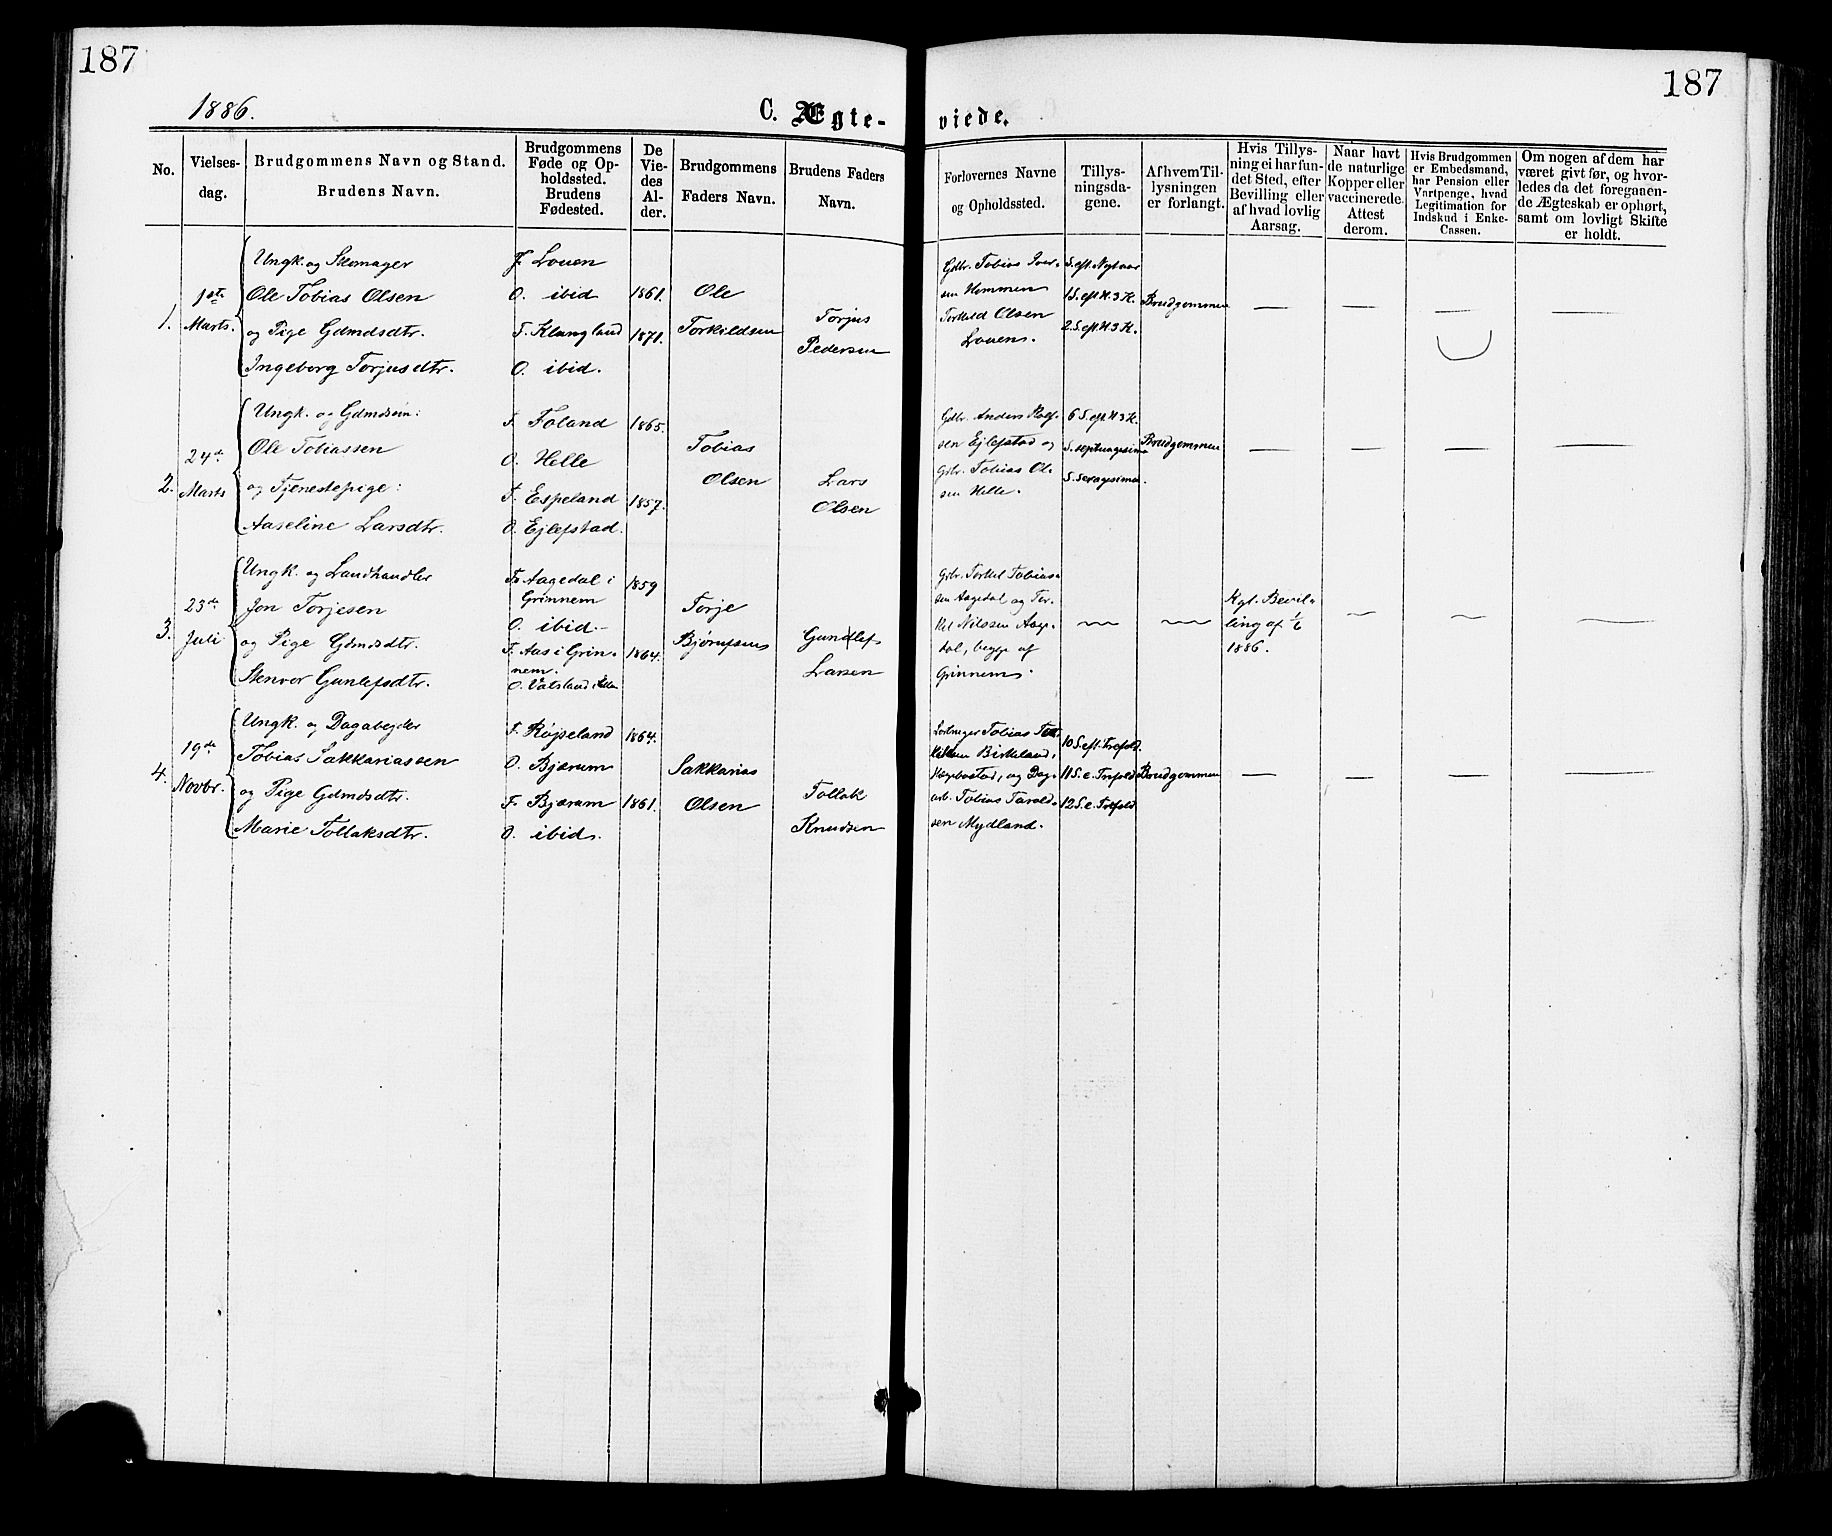 187
187
1886.
C. Ægte-
viede.
No.
Vielses-
dag.
Brudgommens Navn og Stand.
Brudens Navn.
Brudgommens
Føde og Op-
holdssted.
Brudens
Fødested.
De
Vie-
des
Al-
der.
Brudgommens
Faders Navn.
Brudens Faders
Navn.
Forlovernes Navne
og Opholdssted.
Tillys-
ningsda-
gene.
Af hvem Til-
lysningen
er forlangt.
Hvis Tillys-
ning ei har fun-
det Sted, efter
Bevilling eller
af hvad lovlig
Aarsag.
Naar havt
de naturlige
Kopper eller
vaccinerede.
Attest
derom.
Hvis Brudgommen
er Embedsmand,
har Pension eller
Vartpenge, hvad
Legitimation for
Indskud i Enke-
Cassen.
Om nogen af dem har
været givt før, og hvor-
ledes da det foregaaen-
de Ægteskab er ophørt,
samt om lovligt Skifte
er holdt.
1.
1ste
Marts.
Ungk. og Skomager
Ole Tobias Olsen
og Pige Gdmdsdtr.
Ingeborg Torjusdtr.
F. Louen
O. ibid
F. Klungland
O. ibid.
1861.
1871.
Ole
Torkildsen
Torjus
Pedersen
Gdbr. Tobias Iver-
sen Hommen
Torkild Olsen
Louen.
S. eft. Nytaar
1 S. eft H. 3 K.
2 S. eft H 3 K.
Brudgommen
2.
24de
Marts
Ungk. og Gdmdsøn:
Ole Tobiassen
og Tjenestepige:
Aaseline Larsdtr.
F. Foland
O. Helle
F. Espeland
O. Ejlefstad.
1865.
1857.
Tobias
Olsen
Lars
Olsen
Gdbr. Anders
sen Ejlefstad og
Gdbr. Tobias Ol-
sen Helle.
6 S. eft H 3 K.
S. septuagesima
S. sexagesima.
Brudgommen
3.
23de
Juli
Ungk. og Landhandler
Jon Torjesen
og Pige Gdmdsdtr.
Stenvor Gunlefsdtr.
F. Aagedal i
Grinnem
O. ibid.
F. Aas i Grin-
nem.
O. Vatsland i
1859
1864.
Torje
Bjørufsen
Gundlef
Larsen
Gdbr. Torkel Tobias-
sen Aagedal og Tor-
kel Nilssen Aage-
dal, begge af
Grinnem.
Kgl. Bevil-
ling af 1/6
1886.
4.
19de
Novbr.
Ungk. og Dagabejder
Tobias Sakkariassen
og Pige Gdmdsdtr.
Marie Tollaksdtr.
F. Røjseland
O. Bjærum
F. Bjærum
O. ibid.
1864.
1861.
Sakkarias
Olsen
Tollak
Knudsen
Tobias
Birkeland,
Hægebostad, og Dag-
arb. Tobias Tarald-
sen Mydland.
10 S. eft. Trefold.
11 S. e. Trefold
12 S. e. Trefold
Brudgommen